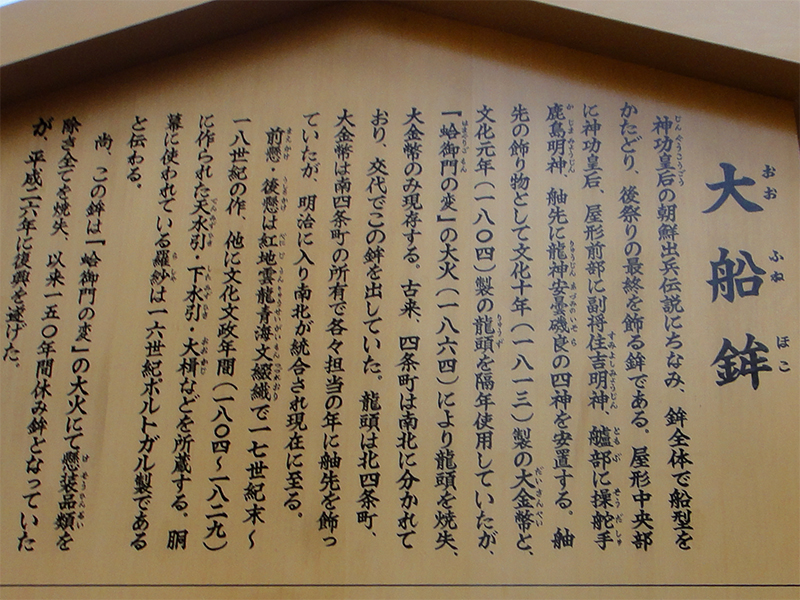 大船鉾
神功皇后の朝鮮出兵伝説にちなみ、鉾全体で船型を
かたどり、後祭りの最終を飾る鉾である。屋形中央部
に神功皇后、屋形前部に副将住吉明神、艫部に操舵手
鹿島明神、舳先に龍神安曇磯良の四神を安置する。舳
先の飾り物として文化十年(一八一三)製の大金幣と、
文化元年(一八〇四)製の龍頭を隔年使用していたが、
「蛤御門の変」の大火(一八六四)により龍頭を焼失、
大金幣のみ現存する。古来、四条町は南北に分かれて
おり、交代でこの鉾を出していた。龍頭は北四条町、
大金幣は南四条町の所有で各々担当の年に舳先を飾っ
ていたが、明治に入り南北が統合され現在に至る。
前懸・後懸は紅地雲龍青海文綴織で一七世紀末〜
一八世紀の作、他に文化文政年間(一八〇四〜一八二九)
に作られた天水引・下水引・大楫などを所蔵する。胴
幕に使われている羅紗は一六世紀ポルトガル製である
と伝わる。
尚、この鉾は「蛤御門の変」の大火にて懸装品類を
除き全てを焼失、以来一五〇年間休み鉾となっていた
が、平成二六年に復興を遂げた。